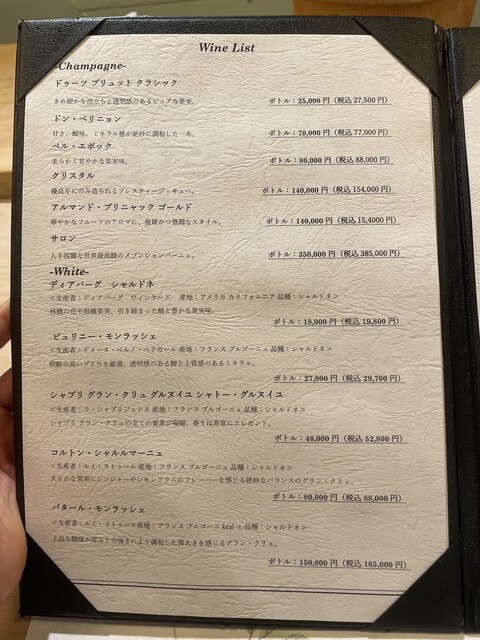 Wine List
-Champagne-
ドゥーツ ブリュット クラシック
きめ細かな泡立ちと透明感のあるピュアな果実。
ボトル：25,000 円（税込 27,500 円）
ドン・ペリニョン
甘さ、酸味、ミネラル感が絶妙に調和した一本。
ボトル：70,000 円（税込 77,000 円）
ベル・エポック
柔らかく甘やかな果実味。
ボトル：80,000 円（税込 88,000 円）
クリスタル
優良年にのみ造られるプレスティージ・キュベ。
ボトル：140,000 円（税込 154,000 円）
アルマンド・ブリニャック ゴールド
華やかなフルーツのアロマに、複雑かつ豊潤なスタイル。
ボトル：140,000 円（税込 15,4000 円）
サロン
入手困難な世界最高峰のメゾンシャンパーニュ。
ボトル：350,000 円（税込 385,000 円）
-White-
ディアバーグ　シャルドネ
＜生産者：ディアバーグ　ヴィンヤード　産地：アメリカ カリフォルニア 品種：シャルドネ＞
林檎の花や柑橘果実、引き締まった酸と豊かな果実味。
ボトル：18,000 円（税込 19,800 円）
ピュリニー・モンラッシェ
＜生産者：ドメーヌ・ペルノ・ベリカール 産地：フランス ブルゴーニュ 品種：シャルドネ＞
樹齢の高いブドウを厳選、透明感のある酸と上質感のあるミネラル。
ボトル：27,000 円（税込 29,700 円）
シャブリ グラン・クリュ グルヌイユ シャトー・グルヌイユ
＜生産者：ラ・シャブリジェンヌ 産地：フランス ブルゴーニュ 品種：シャルドネ＞
シャブリ グラン・クリュの全ての要素が凝縮、香りは非常にエレガント。
ボトル：48,000 円（税込 52,800 円）
コルトン・シャルルマーニュ
＜生産者：ルイ・ラトゥール 産地：フランス ブルゴーニュ 品種：シャルドネ＞
大らかな果実にジンジャーやレモングラスのフレーバーを感じる絶妙なバランスのグラン・クリュ。
ボトル：80,000 円（税込 88,000 円）
バタール・モンラッシェ
＜生産者：ルイ・ラトゥール 産地：フランス ブルゴーニ kcal ュ 品種：シャルドネ＞
上品な酸味が厚みと力強さによく調和した偉大さを感じるグラン・クリュ。
ボトル：150,000 円（税込 165,000 円）